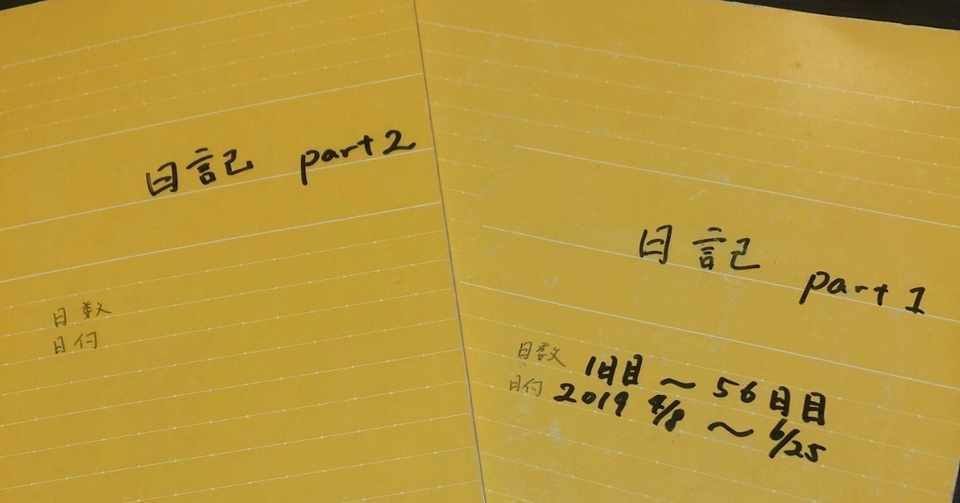 日記 part2
日数
日付
日記 part1
日数 1日目 〜 56日目
日付 2019 4/8 〜 6/25